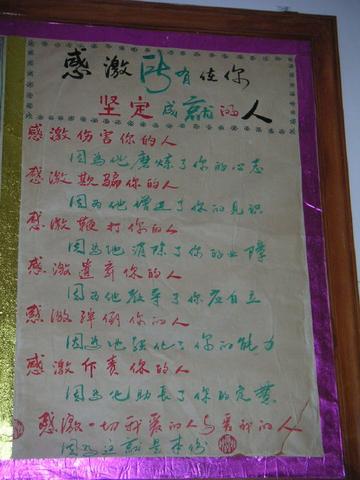 感激所有使你
坚定成就的人
感激伤害你的人
因为他磨炼了你的心志
感激欺骗你的人
因为他增进了你的见识
感激鞭打你的人
因为他消除了你的业障
感激遗弃你的人
因为他教导了你应自立
感激绊倒你的人
因为他强化了你的能力
感激斥责你的人
因为他助长了你的定慧
感激一切我爱的人与爱我的人
因为这就是